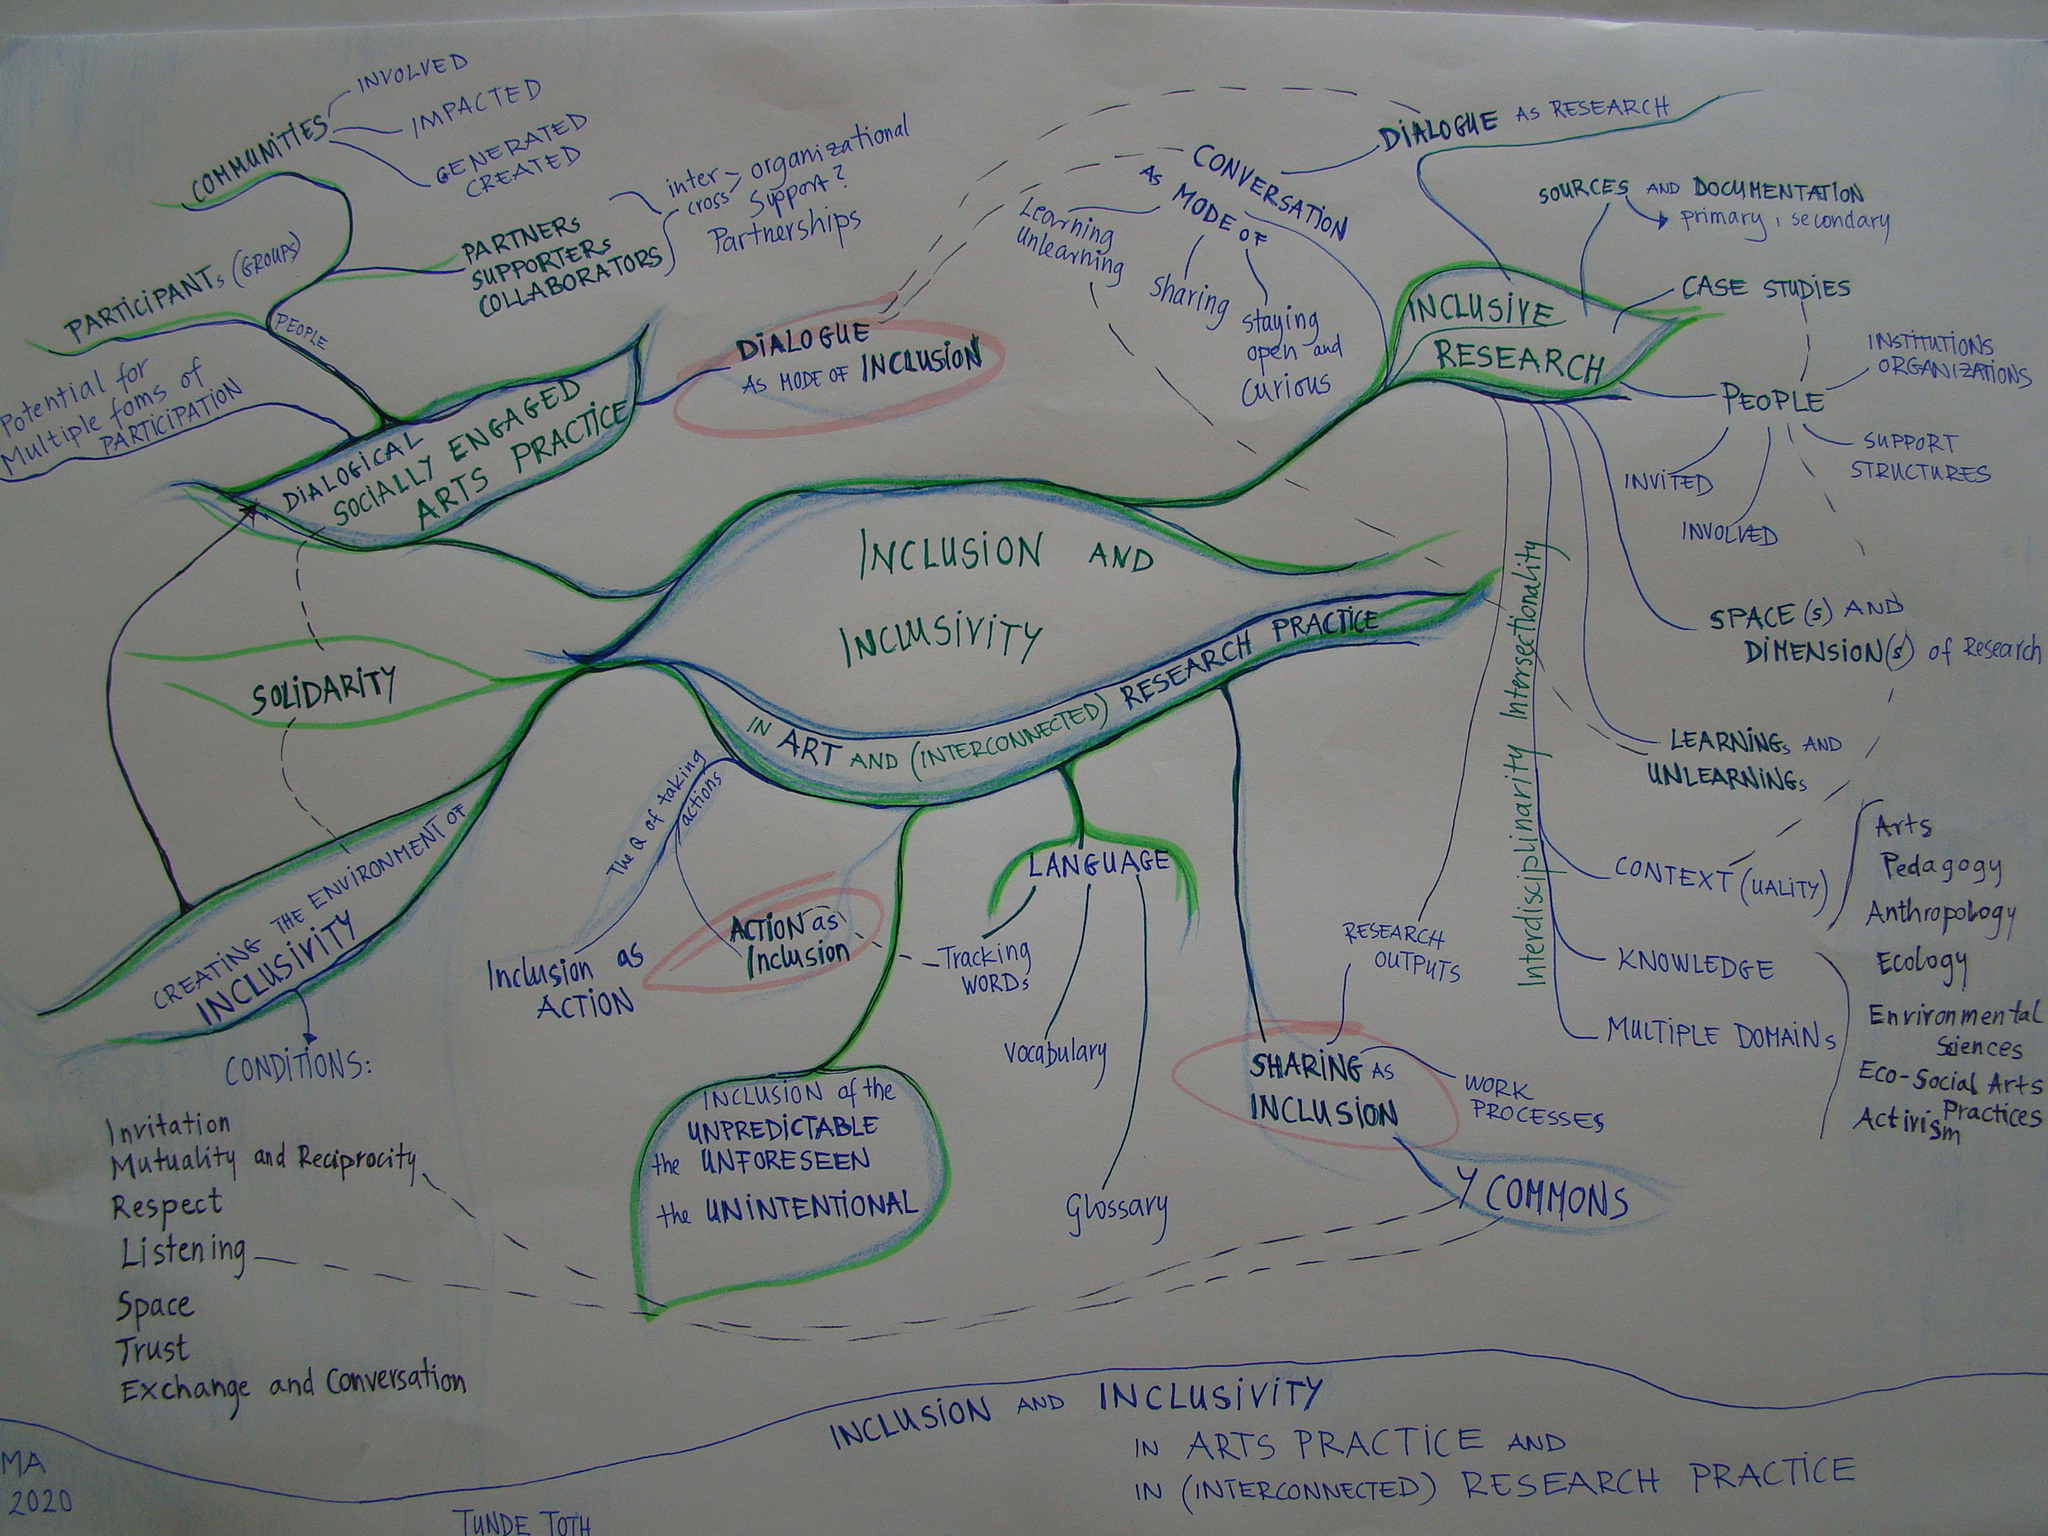 COMMUNITIES
INVOLVED
IMPACTED
GENERATED
CREATED
PARTICIPANTs (GROUPS)
PEOPLE
PARTNERS
SUPPORTERs
COLLABORATORS
inter
cross
organizational
Support?
Partnerships
Potential for
Multiple foms of
PARTICIPATION
DIALOGICAL
SOCIALLY ENGAGED
ARTS PRACTICE
DIALOGUE
AS MODE OF INCLUSION
CONVERSATION
AS MODE OF
Learning
Unlearning
Sharing
staying
open and
Curious
DIALOGUE AS RESEARCH
SOURCES AND DOCUMENTATION
primary, secondary
INCLUSIVE
RESEARCH
CASE STUDIES
PEOPLE
INSTITUTIONS
ORGANIZATIONS
SUPPORT
STRUCTURES
INVITED
INVOLVED
SPACE(s) AND
DIMENSION(s) of Research
LEARNINGs AND
UNLEARNINGs
Interdisciplinarity Intersectionality
CONTEXT (UALITY)
KNOWLEDGE
MULTIPLE DOMAINs
Arts
Pedagogy
Anthropology
Ecology
Environmental
Sciences
Eco-Social Arts
Practices
Activism
INCLUSION AND
INCLUSIVITY
IN ART AND (INTERCONNECTED) RESEARCH PRACTICE
SOLIDARITY
CREATING THE ENVIRONMENT OF
INCLUSIVITY
CONDITIONS:
Invitation
Mutuality and Reciprocity
Respect
Listening
Space
Trust
Exchange and Conversation
The Q of taking
actions
Inclusion as
ACTION
ACTION as
Inclusion
LANGUAGE
Tracking
WORDs
Vocabulary
Glossary
INCLUSION of the
UNPREDICTABLE
the UNFORESEEN
the UNINTENTIONAL
RESEARCH
OUTPUTS
SHARING AS
INCLUSION
WORK
PROCESSES
Y COMMONS
INCLUSION AND INCLUSIVITY
IN ARTS PRACTICE AND
IN (INTERCONNECTED) RESEARCH PRACTICE
MA
2020
TUNDE TOTH